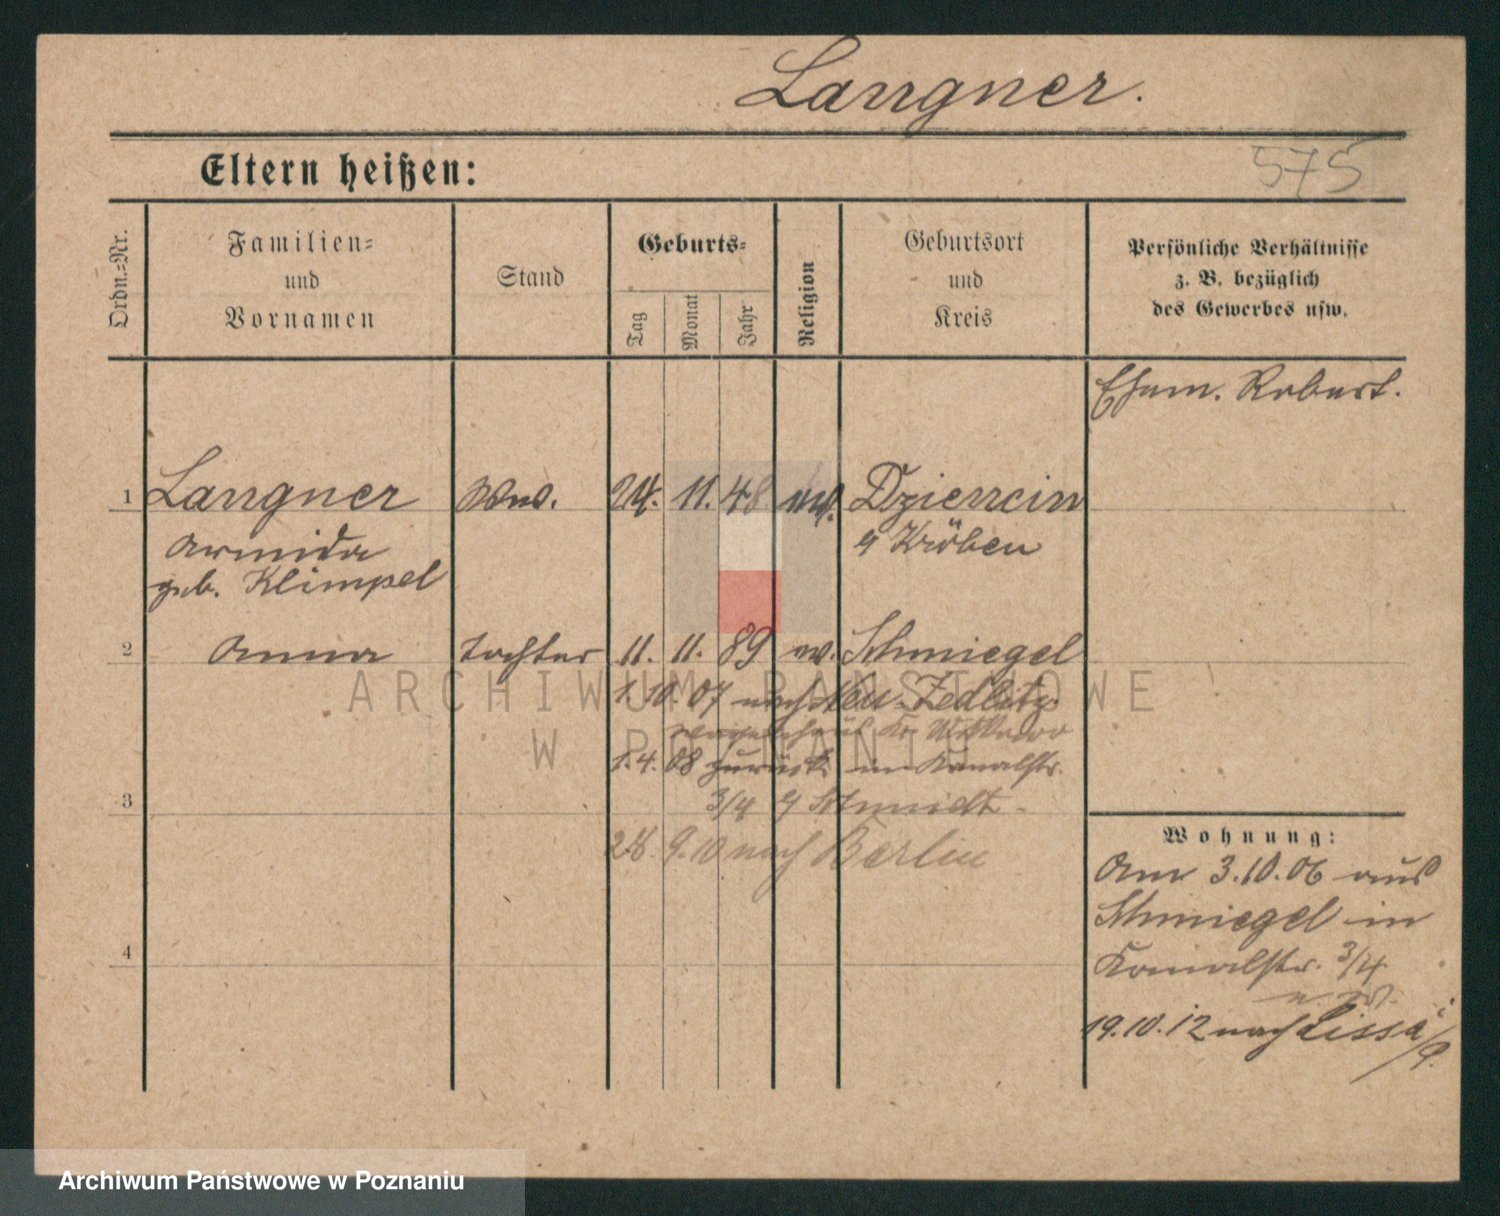 Langner.
575
Eltern heißen:
Ordn.-Nr.
Familien-
und
Vornamen
Stand
Geburts-
Tag
Monat
Jahr
Religion
Geburtsort
und
Kreis
Persönliche Verhältnisse
z. B. bezüglich
des Gewerbes usw.
Ehem. Robert.
1 Langner Wwe. 24. 11. 48 Dziencin
Armida Kröben
geb. Klimpel
2 Anna Tochter 11. 11. 89 Schmiegel
1. 10. 07 nach Neu-Zedlitz
Kr. Witkowo
1. 4. 08 zurück in Kanalstr.
3/4 Schmidt
3
28. 9. 10 nach Berlin
4
Wohnung:
Am 3. 10. 06 aus
Schmiegel in
Kanalstr. 3/4
19. 10. 12 nach Lissa i/P.
ARCHIWUM PAŃSTWOWE
W POZNANIU
Archiwum Państwowe w Poznaniu